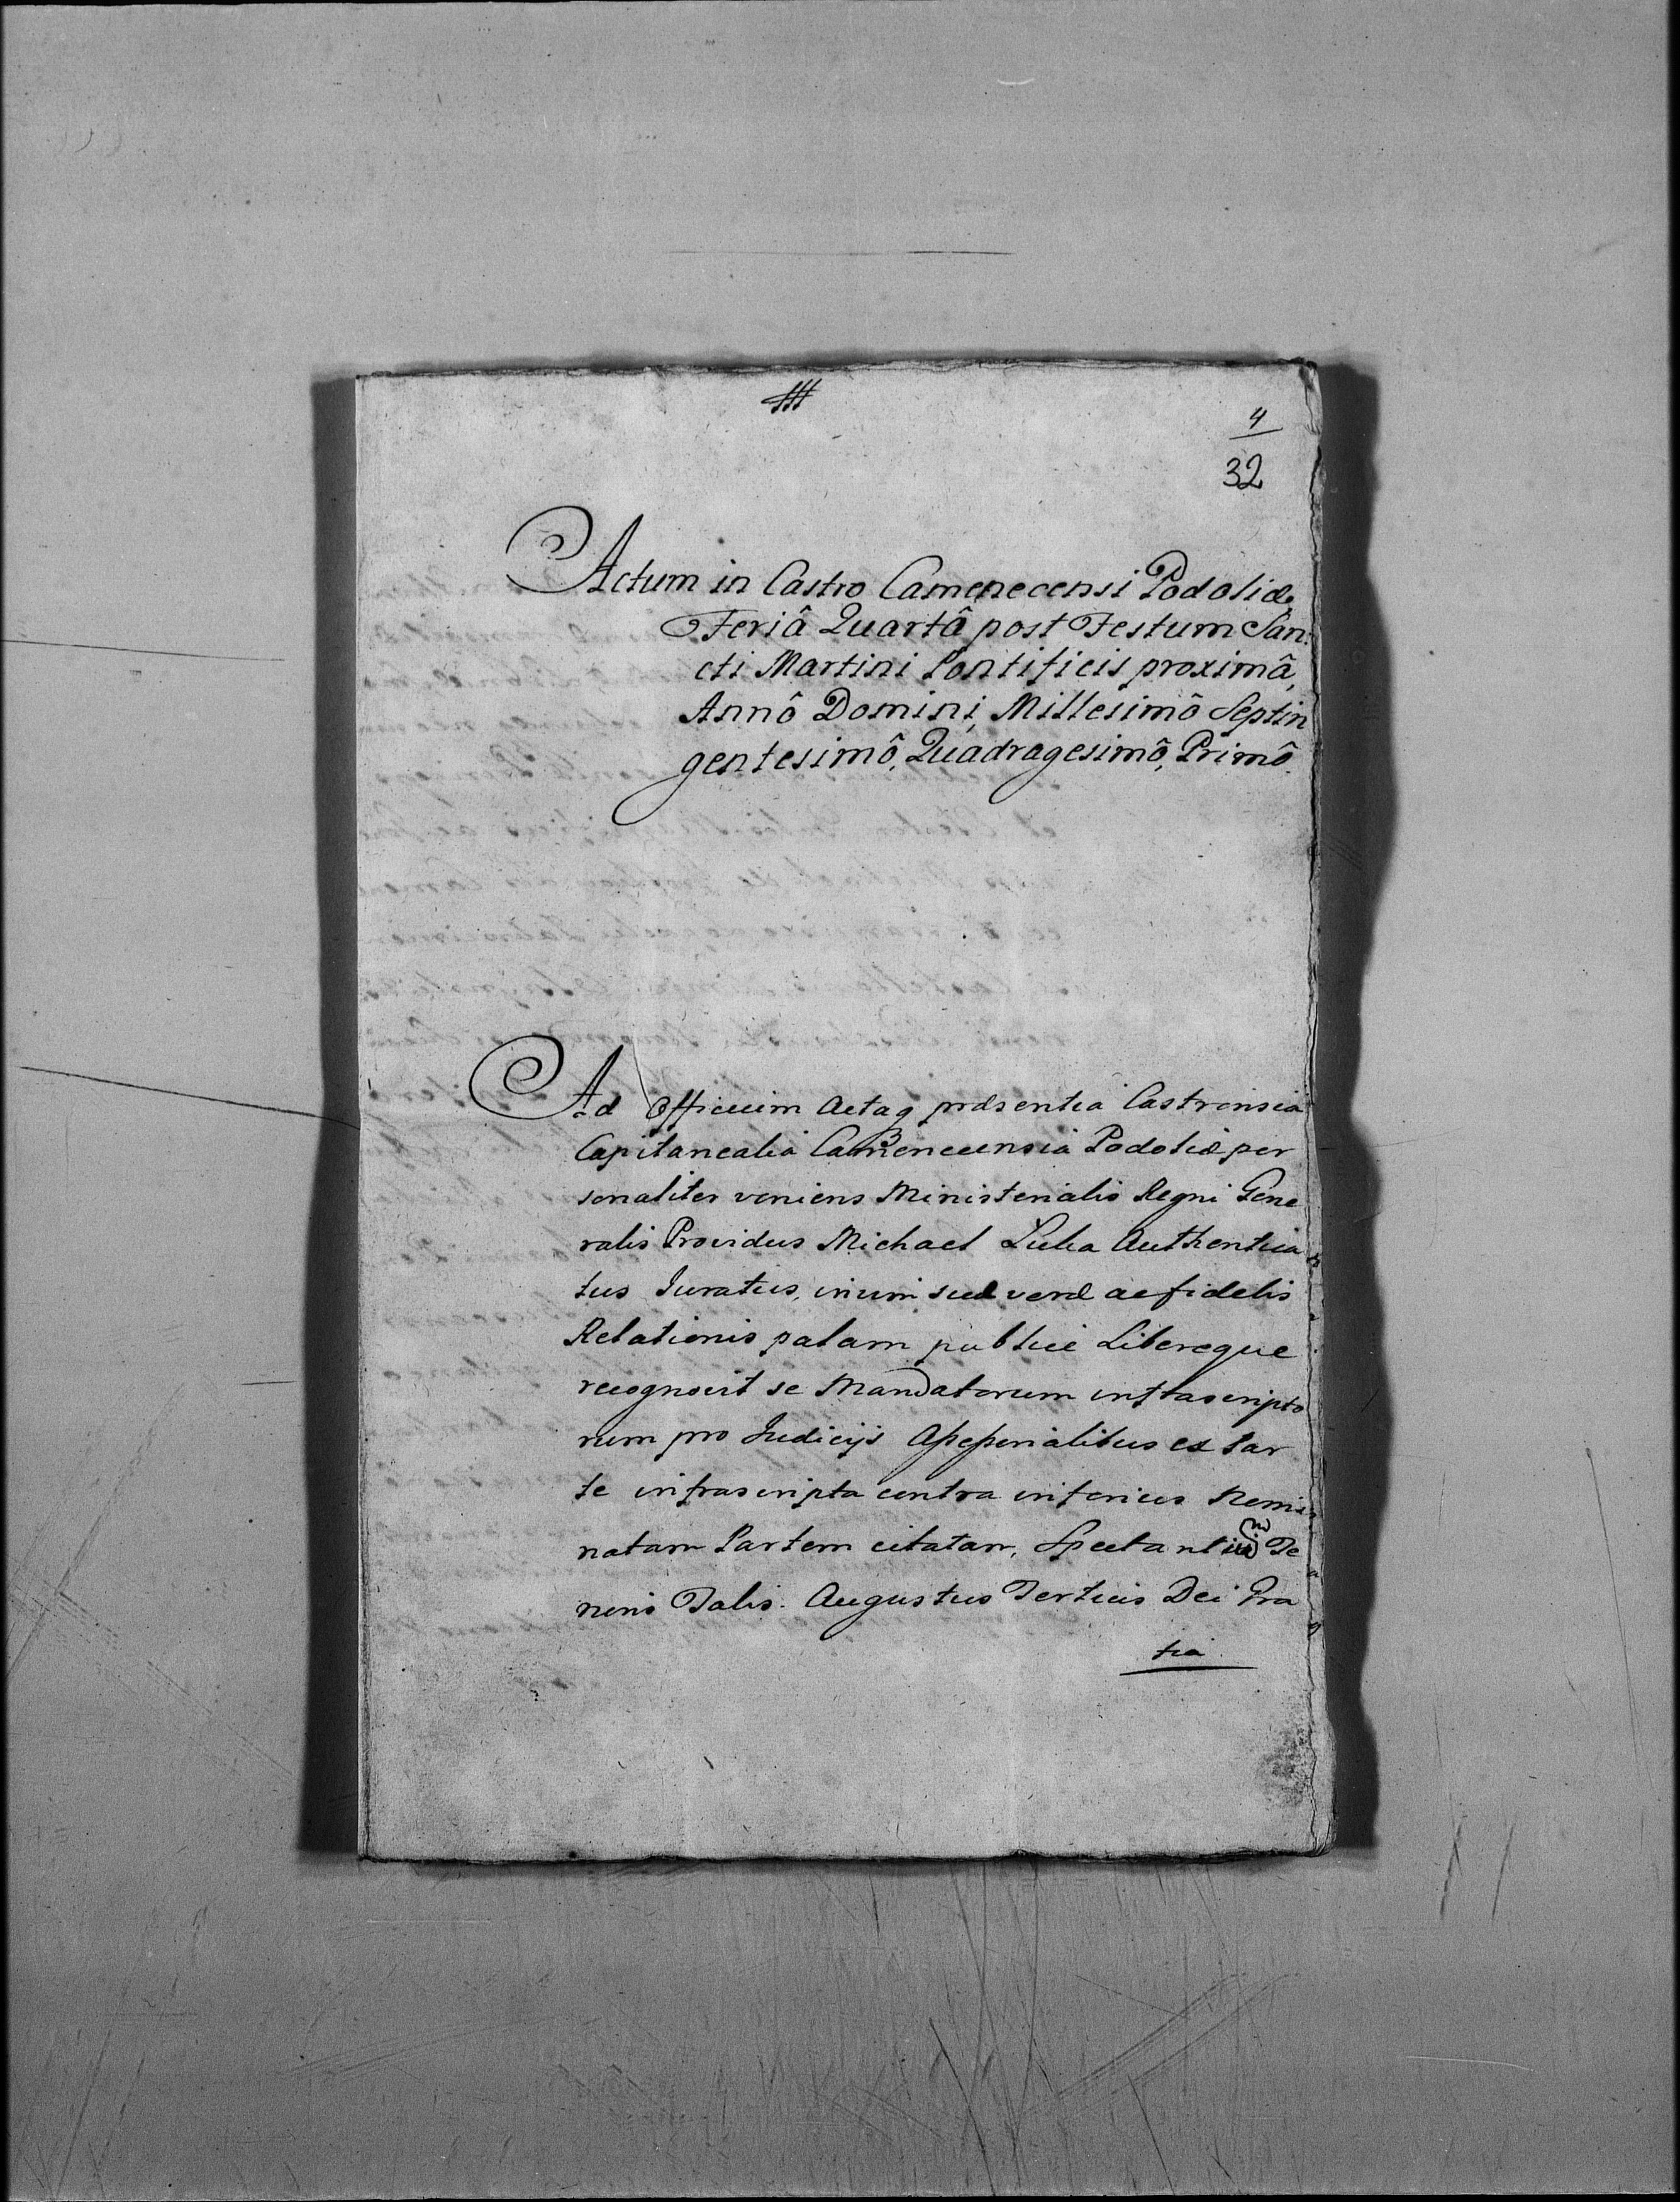 4
32
Actum in Castro Camenecensi Podoliæ,
Feriâ Quartâ post Festum San:
cti Martini Pontificis proximâ,
Annô Domini, Millesimô Septin
gentesimô, Quadragesimô, Primô.
Ad Officium Actaq præsentia Castrensia
Capitanealia Camenecensia Podoliæ per
sonaliter veniens Ministerialis Regni Gene
ralis Providus Michael Authentica
tus Juratus, in vim suæ veræ ac fidelis
Relationis palam publice Libereque
recognovit se Mandatorum infrascripto
rum pro Judicijs ex Par
te infrascripta contra inferius Nomi
natam Partem citatam, Spectantium Te
noris Talis. Augustus Tertius Dei Gra
tia